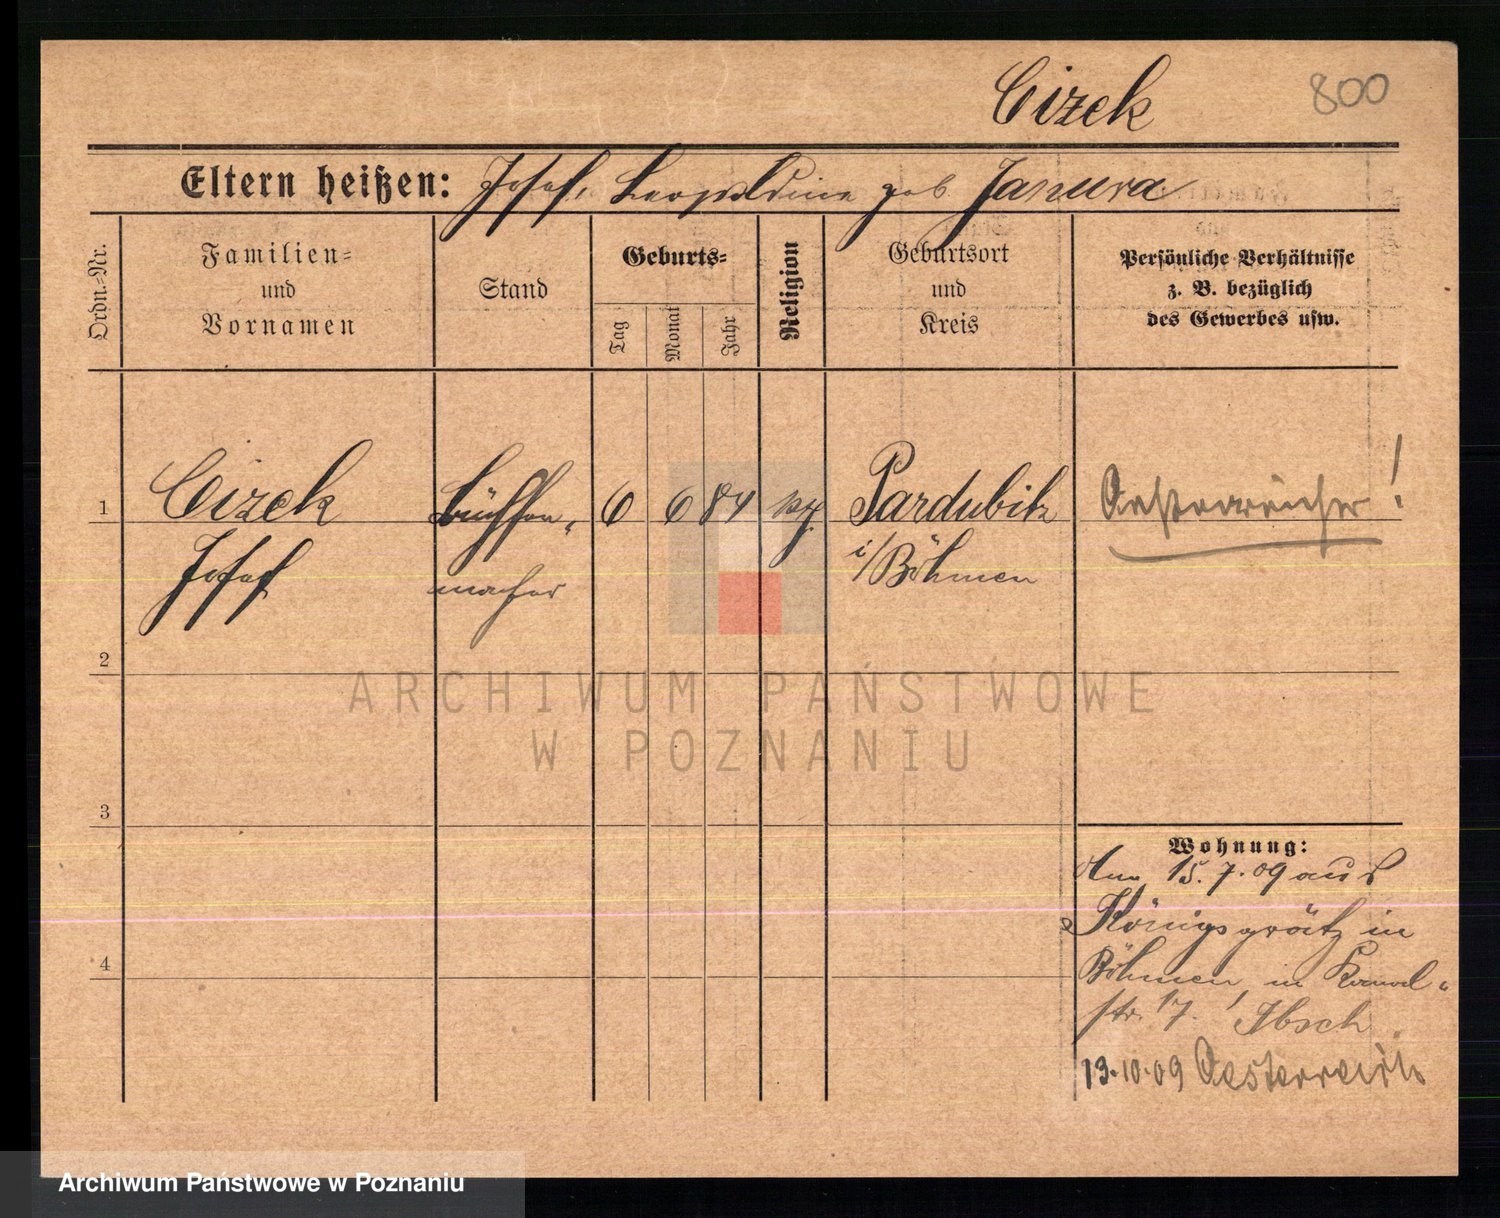 Cizek
800
Eltern heißen: Josef, Leopoldine geb. Janura
Ordn.-Nr.
Familien-
und
Vornamen
Stand
Geburts-
Tag
Monat
Jahr
Religion
Geburtsort
und
Kreis
Persönliche Verhältnisse
z. B. bezüglich
des Gewerbes usw.
1
Cizek
Josef
Büchsen-
macher
6
6
84
Pardubitz
i/Böhmen
Oesterreicher!
2
3
4
Wohnung:
15.7.09 aus
Königsgrätz in
Böhmen in Kanal-
str. 17. Ibsch
13.10.09 Oesterreich
ARCHIWUM PAŃSTWOWE
W POZNANIU
Archiwum Państwowe w Poznaniu